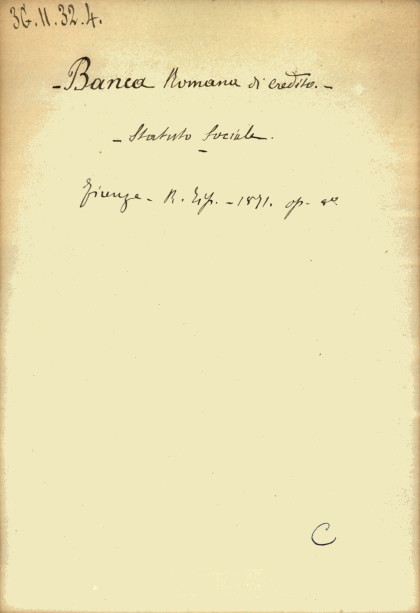 36.11.32.4.
- Banca Romana di Credito. -
- Statuto Sociale.
-
Firenze - R. Tip. - 1871. op. 8º
C